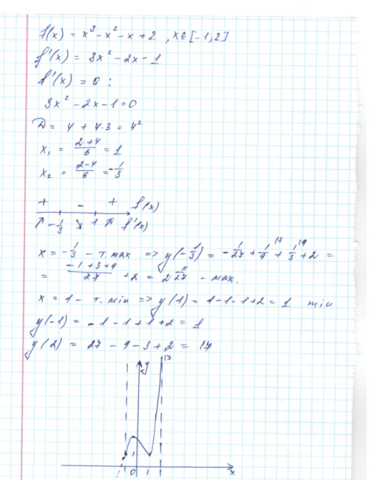 f(x) = x³ - x² - x + 2 , x∈[-1; 2]
f'(x) = 3x² - 2x - 1
f'(x) = 0 :
3x² - 2x - 1 = 0
D = 4 + 4·3 = 4²
x₁ = (2+4)/6 = 1
x₂ = (2-4)/6 = -1/3
+ - + f(x)
-1/3 1 f'(x)
x = -1/3 - т. max => y(-1/3) = -1/27 + 1/9 + 1/3 + 2 =
= (-1+3+9)/27 + 2 = 2 11/27 - max.
x = 1 - т. min => y(1) = 1-1-1+2 = 1 min
y(-1) = -1-1+1+2 = 1
y(2) = 27 - 9 - 3 + 2 = 17
y 17
1
-1 0 1 x